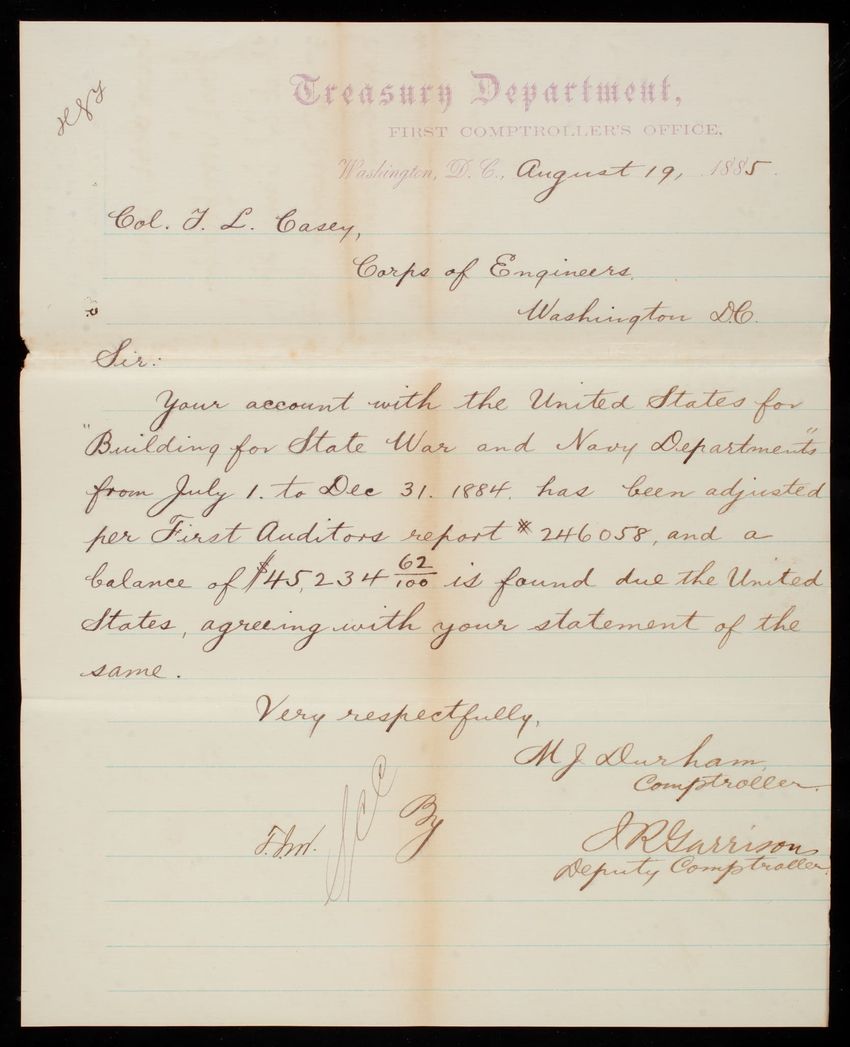 Treasury Department,
FIRST COMPTROLLER'S OFFICE,
Washington, D. C., August 19, 1885.
Col. T. L. Casey,
Corps of Engineers.
Washington D.C.
Sir:
Your account with the United States for
"Building for State War and Navy Departments"
from July 1. to Dec 31. 1884. has been adjusted
per First Auditors report # 246058, and a
balance of $45,234 62/100 is found due the United
States, agreeing with your statement of the
same.
Very respectfully,
M J Durham,
Comptroller.
By
J R Garrison
Deputy Comptroller.